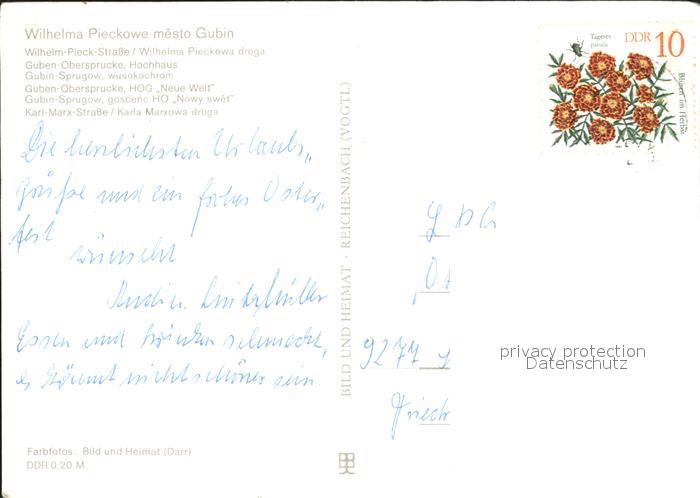 Wilhelma Pieckowe město Gubin
Wilhelm-Pieck-Straße / Wilhelma Pieckowa droga
Guben-Obersprucke, Hochhaus
Gubin-Sprugow, wusokochrom
Guben-Obersprucke, HOG „Neue Welt"
Gubin-Sprugow, gosceńc HO „Nowy swět"
Karl-Marx-Straße / Karla Marxowa droga
Die herzlichsten Urlaubs„
grüße und ein frohes Oster„
fest
wünscht
Essen und trinken schmeckt,
es könnt nicht schöner sein
Farbfotos: Bild und Heimat (Darr)
DDR 0,20 M
BILD UND HEIMAT · REICHENBACH (VOGTL)
Tagetes
patula
DDR 10
Blumen im Herbst
9277
Friedr
privacy protection
Datenschutz